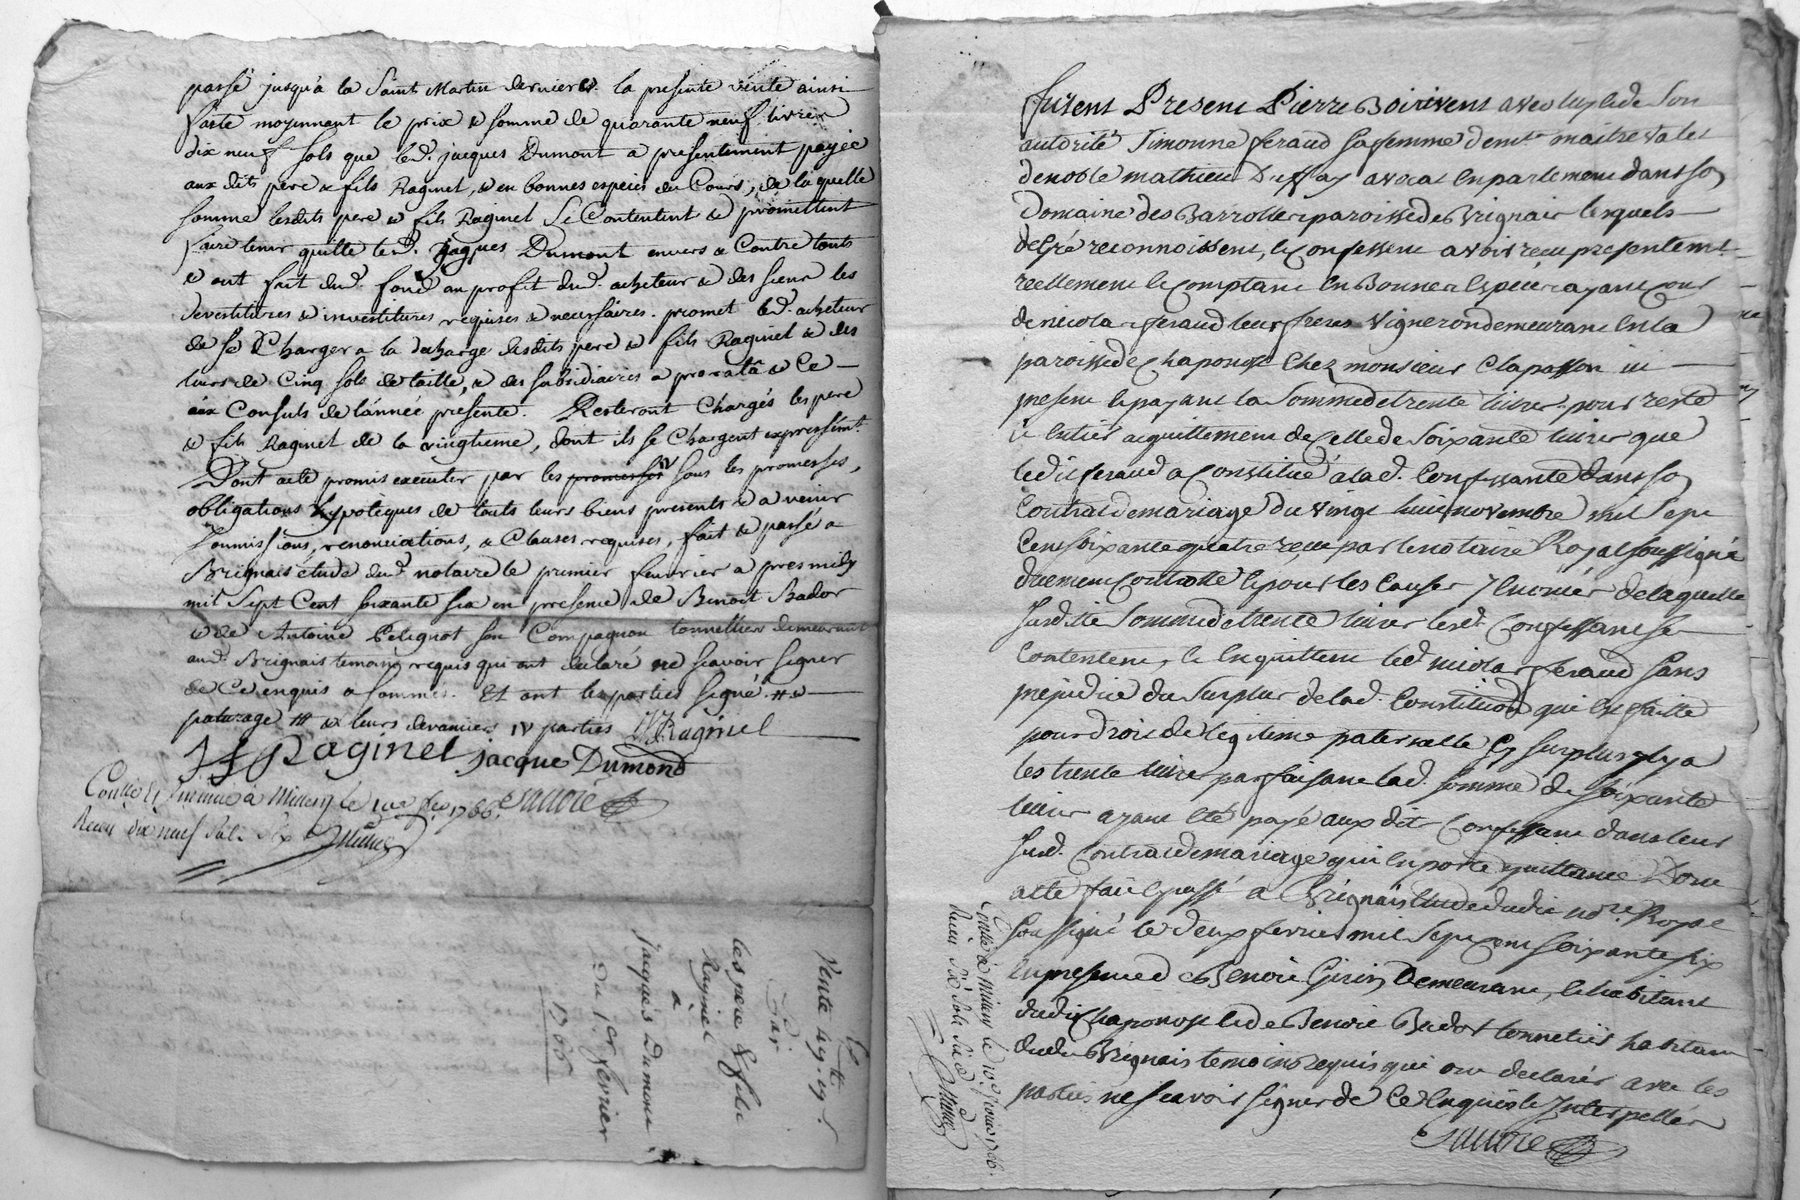 passé jusqu'a la Saint Martin derniere. la presente vente ainsi
faite moyennant le prix & somme de quarante neuf livres
dix neuf sols que led. jacques Dumont a presentement payée
aux dits pere & fils Raginel, & en bonnes especes du Cours, de laquelle
somme lesdits pere & fils Raginel se Contentent & promettent
faire tenir quitte led. jaques Dumont envers & Contre touts
& ont fait dud. fond au profit dud. acheteur & des siens les
devestitures & investitures requises & necessaires. promet led. acheteur
de se Charger a la decharge desdits pere & fils Raginel & des
leurs de Cinq sols de taille, & des subsidiaires a prorata & Ce
aux Consuls de l'année présente. Resteront Chargés les pere
& fils Raginel de la vingtieme, dont ils se Chargent expressémt.
Dont acte promis executer par les promesses sous les promesses,
obligations hypoteques de touts leurs biens presents & a venir
soumissions, renonciations, & Clauses requises, fait & passé a
Brignais etude dud. notaire le premier fevrier a pres midy
mil Sept Cent soixante six en presence de Benoit Bador
& de Antoine Petignot son Compagnon tonnellier demeurant
aud. Brignais temoins requis qui ont declaré ne scavoir signer
de Ce enquis & sommés. Et ont les parties signé #&
paturage # & leurs devanciers IV parties Raginel
Raginel Jacque Dumond
Contlé Et Insinué à Millery le 1766.
Reçu dix neuf sols six
Vente
Par
les pere & fils
Raginel
à
jacques Dumont
Du 1er. fevrier
1766
furent Present Pierre Boirivent avec luy & de Son
autorité Simonne feraud sa femme demt. maitre valet
de noble mathieu Duffay avocat en parlement dans so
Domaine des Barrolles paroisse de Brignais lesquels
de gré reconnoissent, & Confessent avoir reçu presentemt.
reellement & comptant en Bonnes Espéces ayant cours
de nicolas feraud leur frere vigneron demeurant en la
paroisse de chaponost chez monsieur Clapasson ici
present & payant la Somme de trente livres pour reste
& entier acquittement de Celle de Soixante livres que
ledit feraud a Constitué a lad. Confessante dans so
Contrat de mariage du vingt huit novembre mil Sept
Cent soixante quatre reçu par le notaire Royal soussigné
duement Controllé & pour les Causes y enoncés de laquelle
susditte Somme de trente livres lesd. Confessants se
Contentent, & En quittent led. nicolas feraud sans
prejudice du Surplus de lad. Constitution qui Est faitte
pour droit de legitime paternelle & surplus il y a
les trente livres parfaisant lad. somme de soixante
livres ayant Eté payé aux dit Confessants dans leur
susd. Contrat de mariage qui En porte quittance. Dont
acte fait & passé a Brignais Etude dudit nore. Royal
soussigné le deux fevrier mil sept cent soixante six
En presence de Benoit Girin Demeurant, & habitant
dudit chaponost & de Benoit Bador tonnelier habitant
dudit Brignais temoins requis qui ont declarés avec les
parties ne scavoir signer de Ce Enquis & Interpellés
Contlé à Millery le 10e fevrier 1766.
Reçu six sols six d